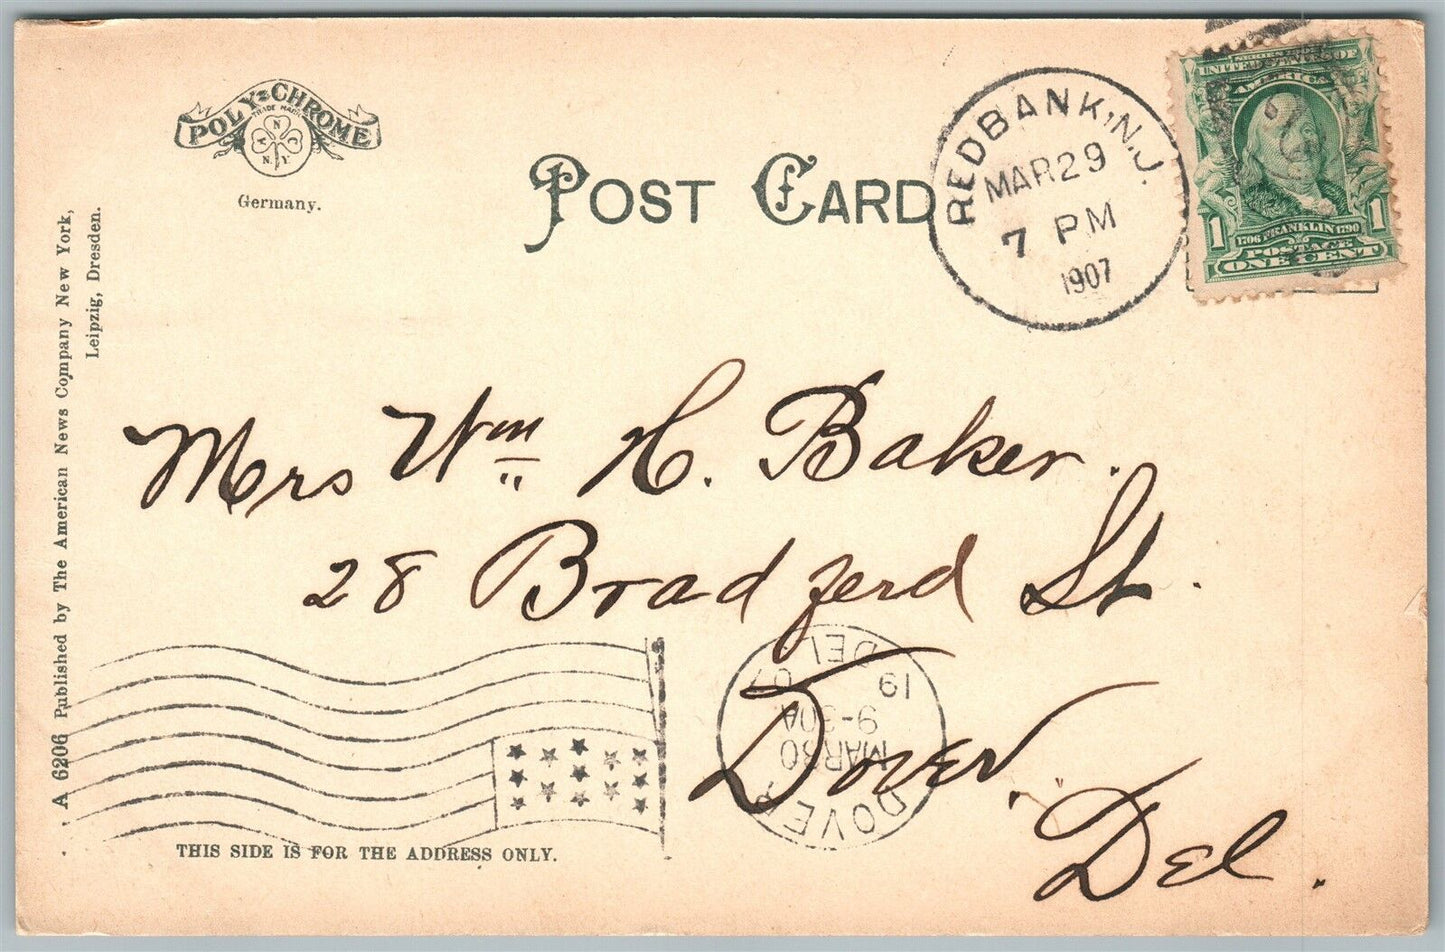 POLY-CHROME
TRADE MARK
A N C
N.Y.
Germany.
POST CARD
REDBANK, N.J.
MAR 29
7 PM
1907
UNITED STATES OF
AMERICA
1 1
1706 FRANKLIN 1790
POSTAGE
ONE CENT
A 6206 Published by The American News Company New York,
Leipzig, Dresden.
Mrs Wm H. Baker.
28 Bradford St.
Dover,
Del.
DOVER
MAR 30
9-30A
19 07
DEL.
THIS SIDE IS FOR THE ADDRESS ONLY.